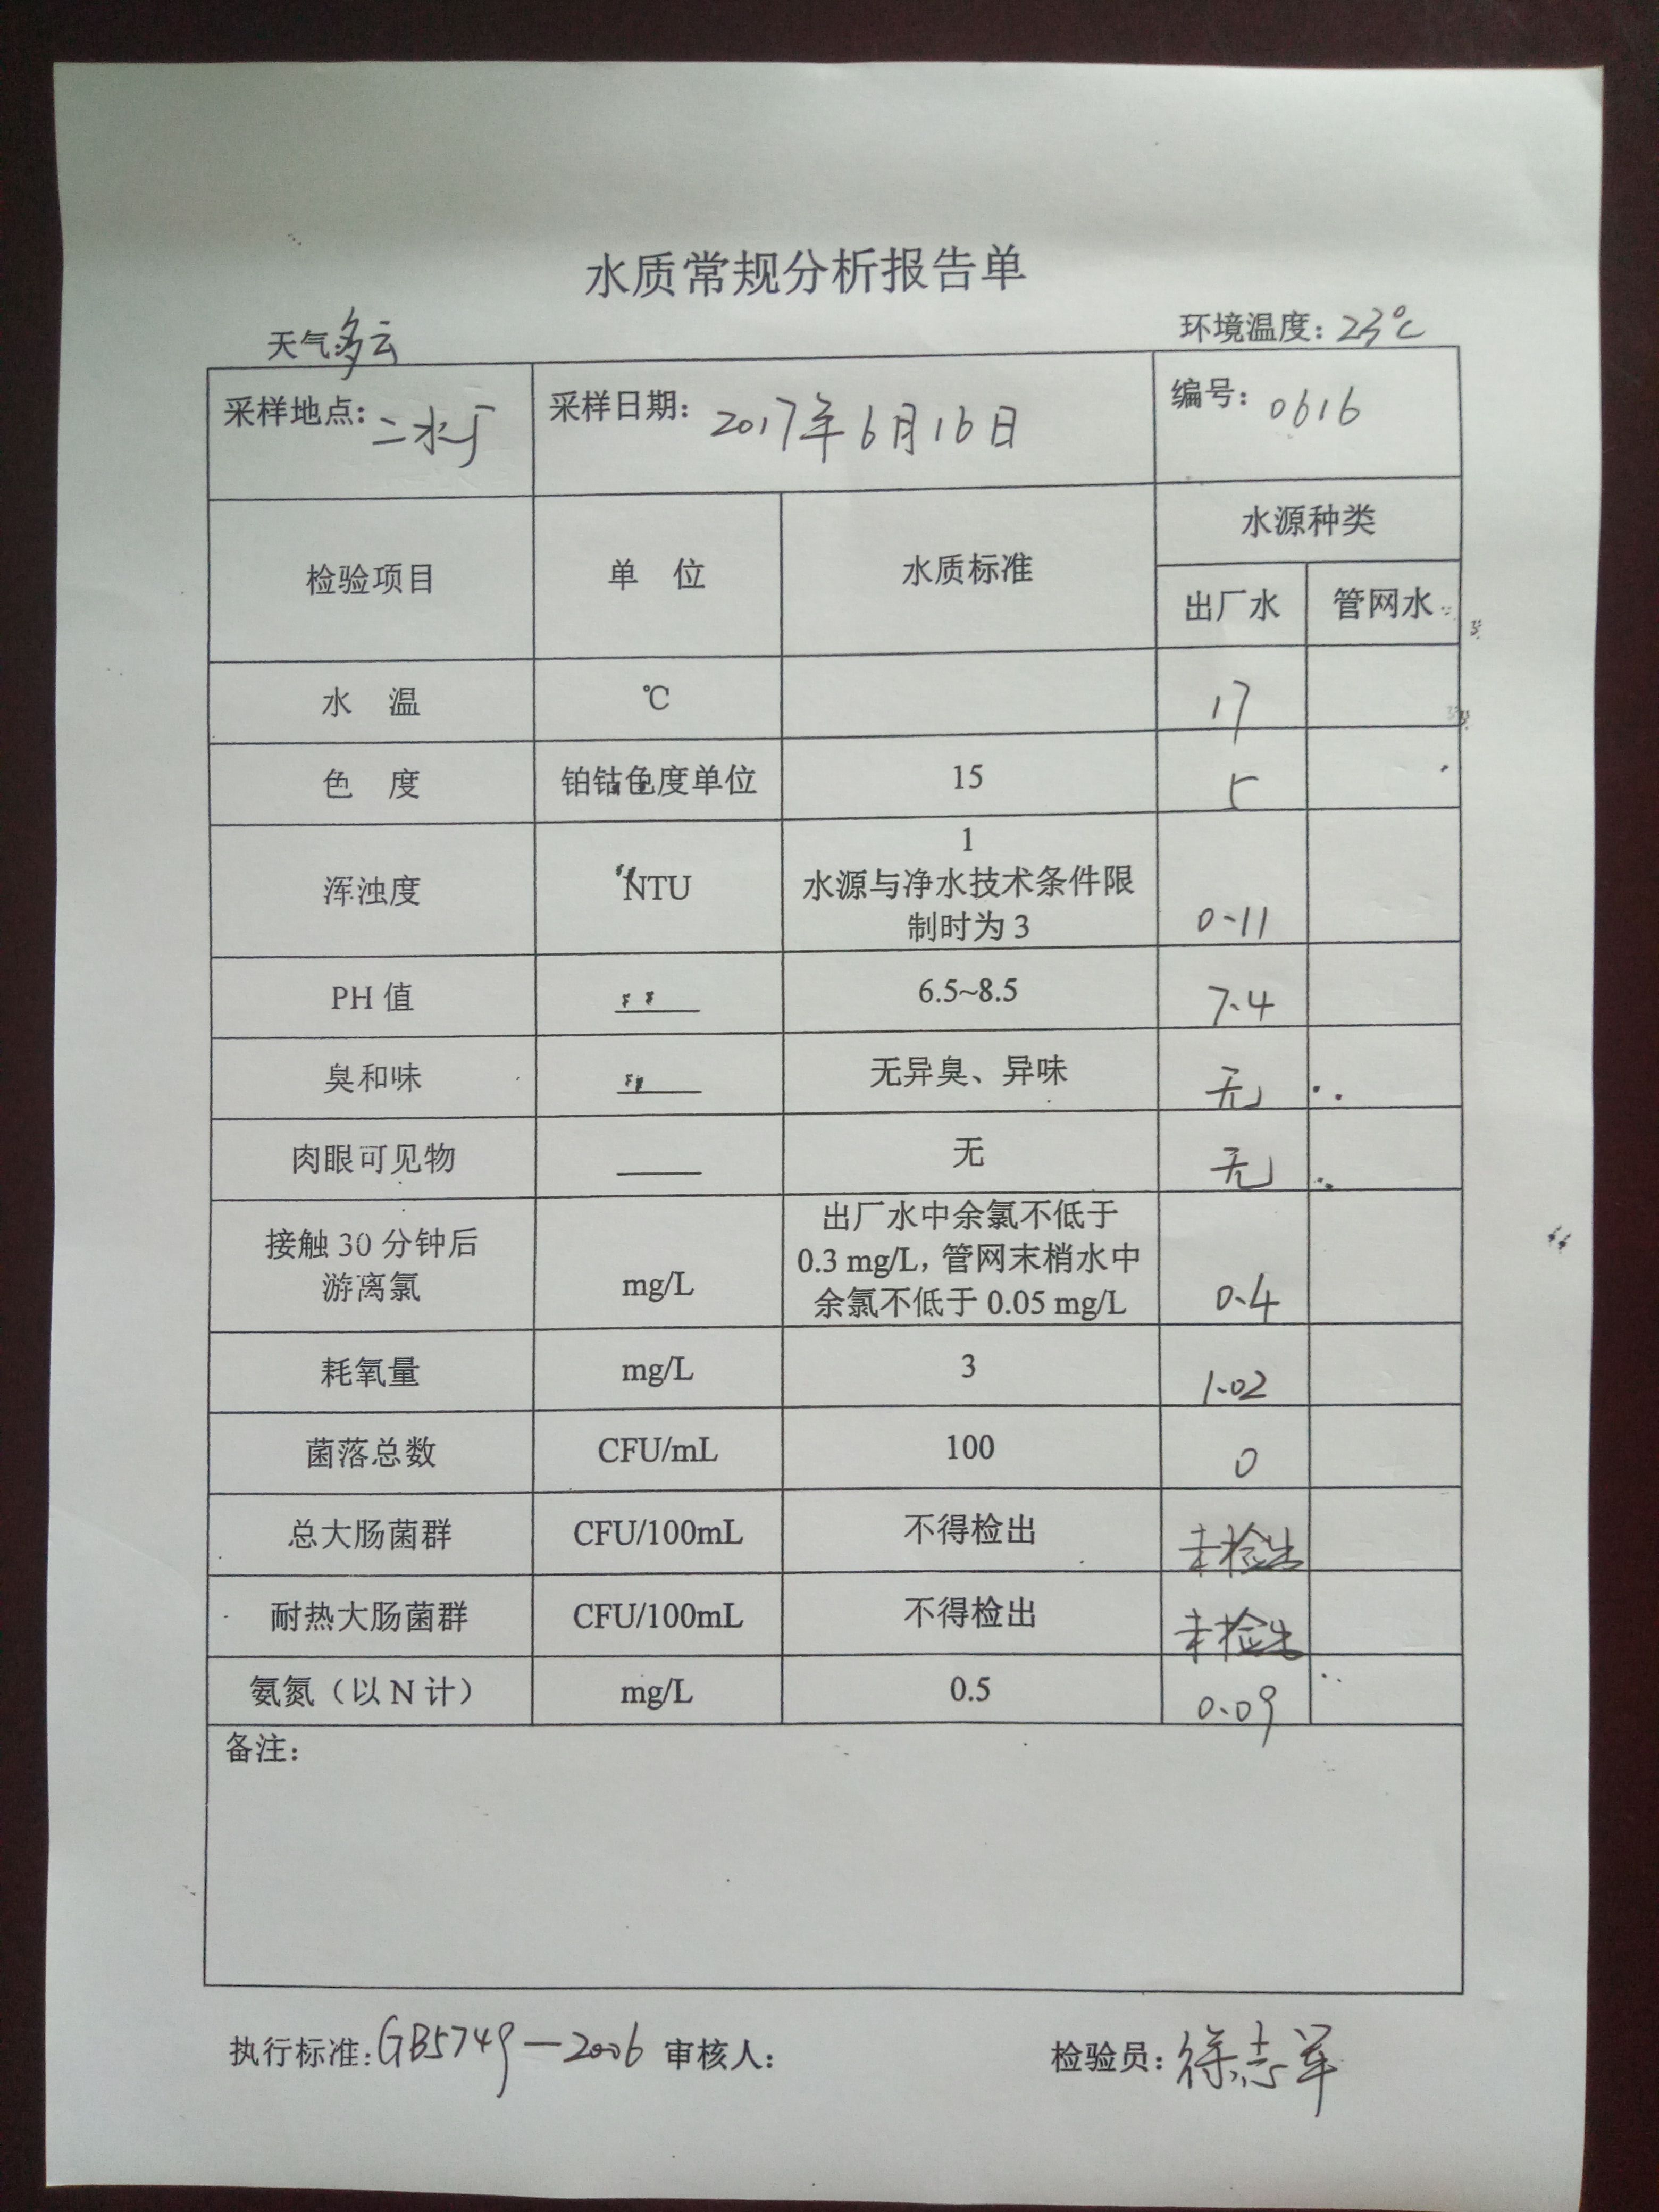 水质常规分析报告单
天气:多云 环境温度：23℃
采样地点：二水厂 采样日期：2017年6月16日 编号：0616
检验项目 单 位 水质标准 水源种类
出厂水 管网水
水 温 ℃ 17
色 度 铂钴色度单位 15 5
浑浊度 NTU 1
水源与净水技术条件限
制时为 3 0.11
PH 值 6.5~8.5 7.4
臭和味 无异臭、异味 无
肉眼可见物 无 无
接触 30 分钟后
游离氯 mg/L 出厂水中余氯不低于
0.3 mg/L，管网末梢水中
余氯不低于 0.05 mg/L 0.4
耗氧量 mg/L 3 1.02
菌落总数 CFU/mL 100 0
总大肠菌群 CFU/100mL 不得检出 未检出
耐热大肠菌群 CFU/100mL 不得检出 未检出
氨氮（以 N 计） mg/L 0.5 0.09
备注：
执行标准：GB5749—2006 审核人： 检验员：徐志军